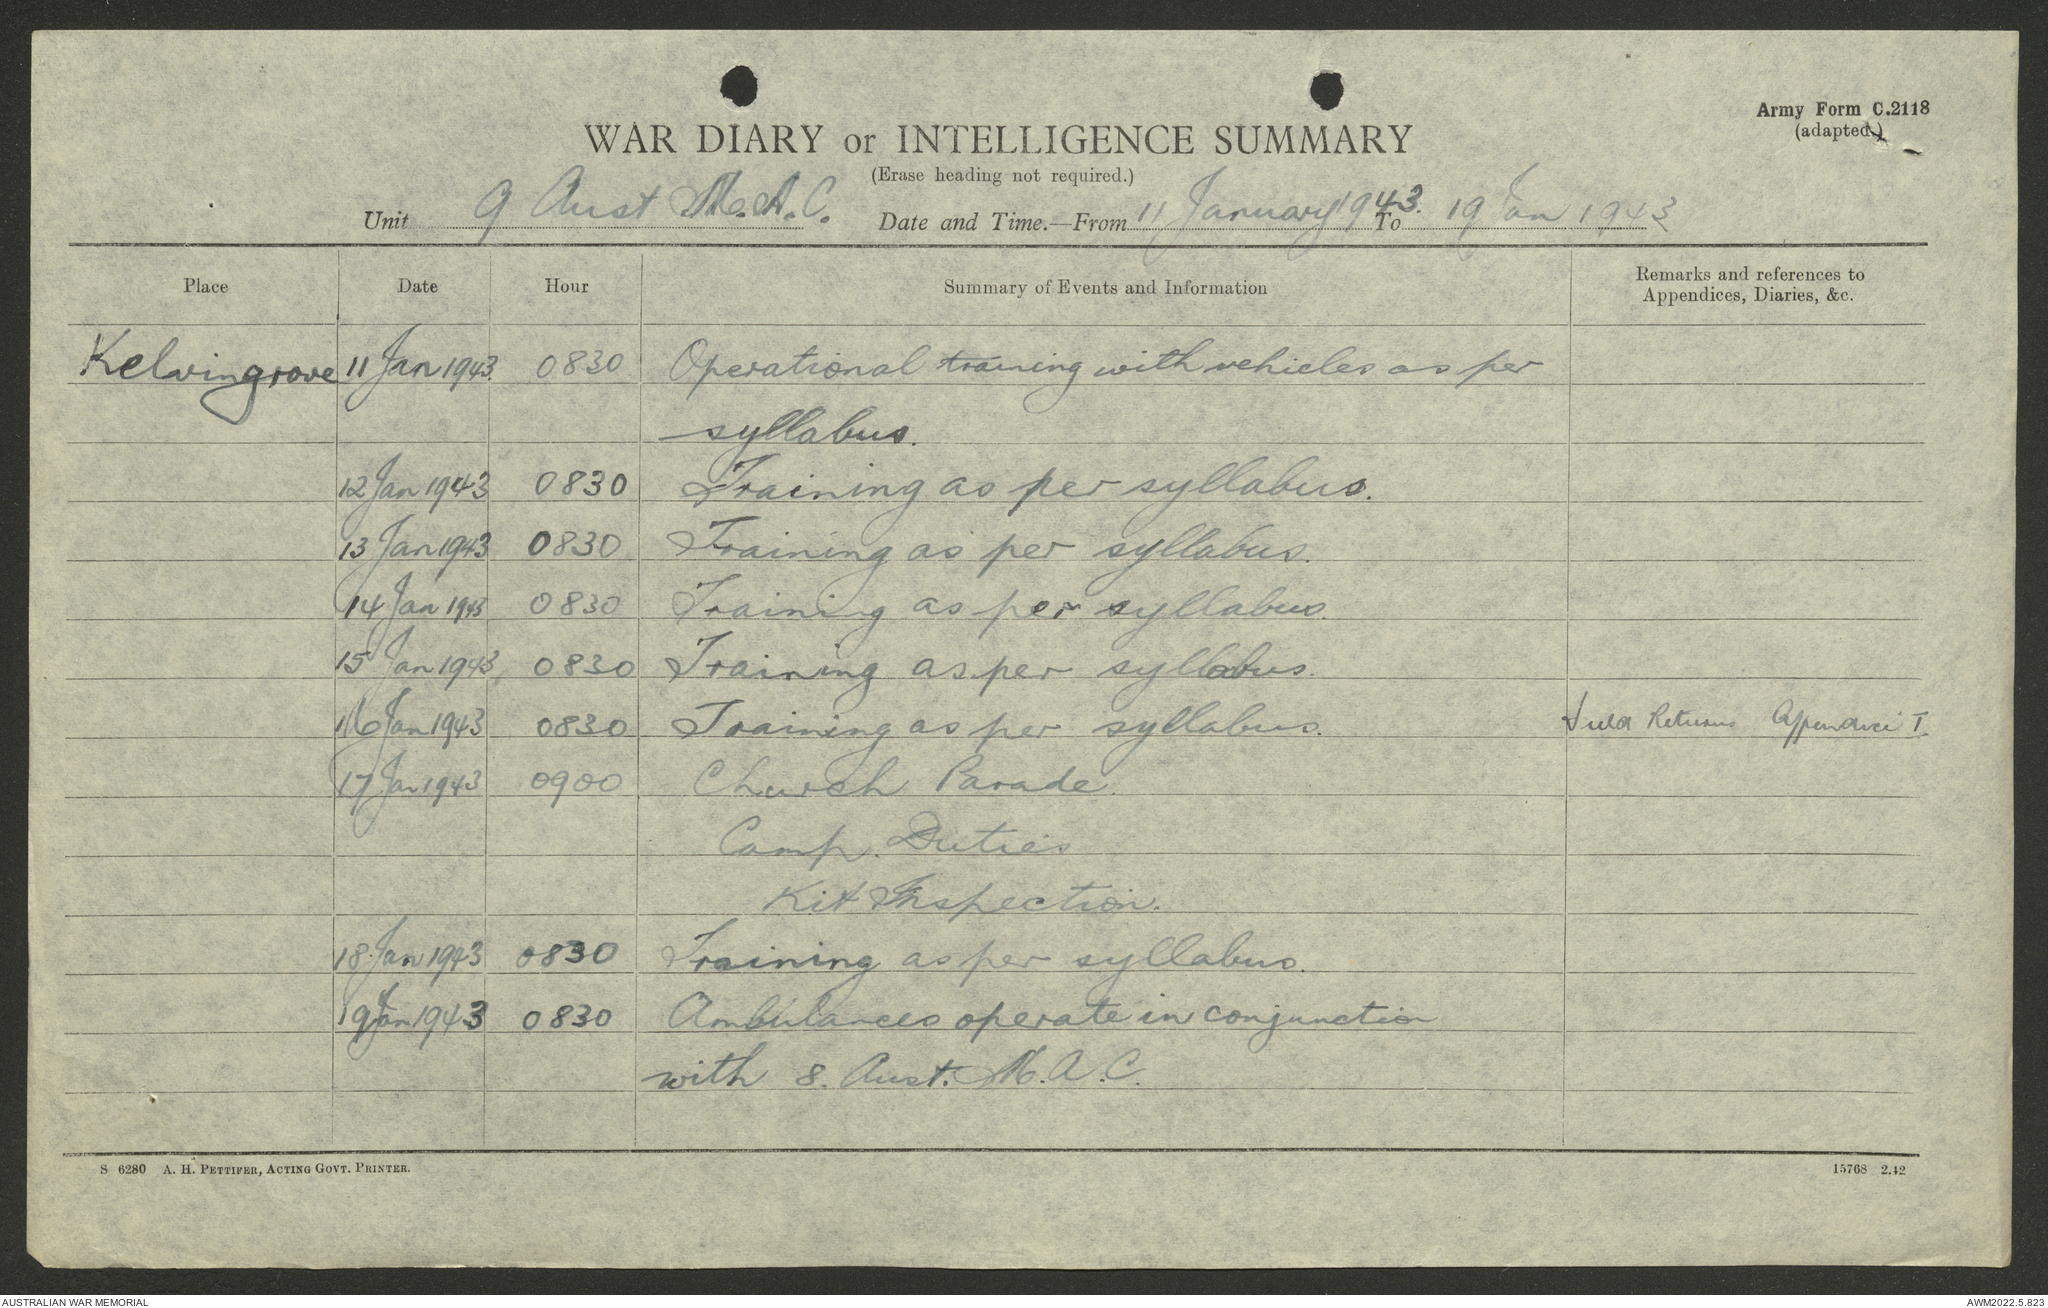 Army Form C.2118
(adapted.)
WAR DIARY or INTELLIGENCE SUMMARY
(Erase heading not required.)
Unit 9 Aust M.A.C. Date and Time.—From 11 January 1943. To 19 Jan 1943
Place Date Hour Summary of Events and Information Remarks and references to
Appendices, Diaries, &c.
Kelvingrove 11 Jan 1943 0830 Operational training with vehicles as per
syllabus.
12 Jan 1943 0830 Training as per syllabus.
13 Jan 1943 0830 Training as per syllabus.
14 Jan 1943 0830 Training as per syllabus.
15 Jan 1943 0830 Training as per syllabus.
16 Jan 1943 0830 Training as per syllabus. Field Returns I.
17 Jan 1943 0900 Church Parade.
Camp. Duties
Kit Inspection.
18 Jan 1943 0830 Training as per syllabus.
19 Jan 1943 0830 Ambulances operate in conjunction
with 8. Aust. M.A.C.
S 6280 A. H. PETTIFER, ACTING GOVT. PRINTER.
15768 2.42
AUSTRALIAN WAR MEMORIAL
AWM2022.5.823